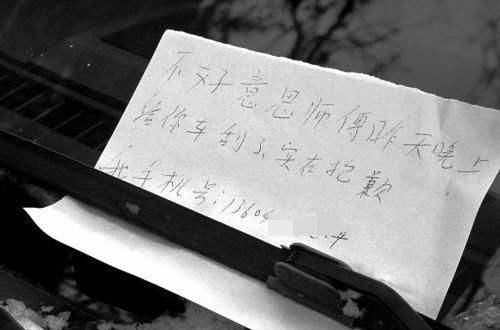 不好意思师傅昨天晚上
给你车刮了、实在抱歉
我手机号:13604